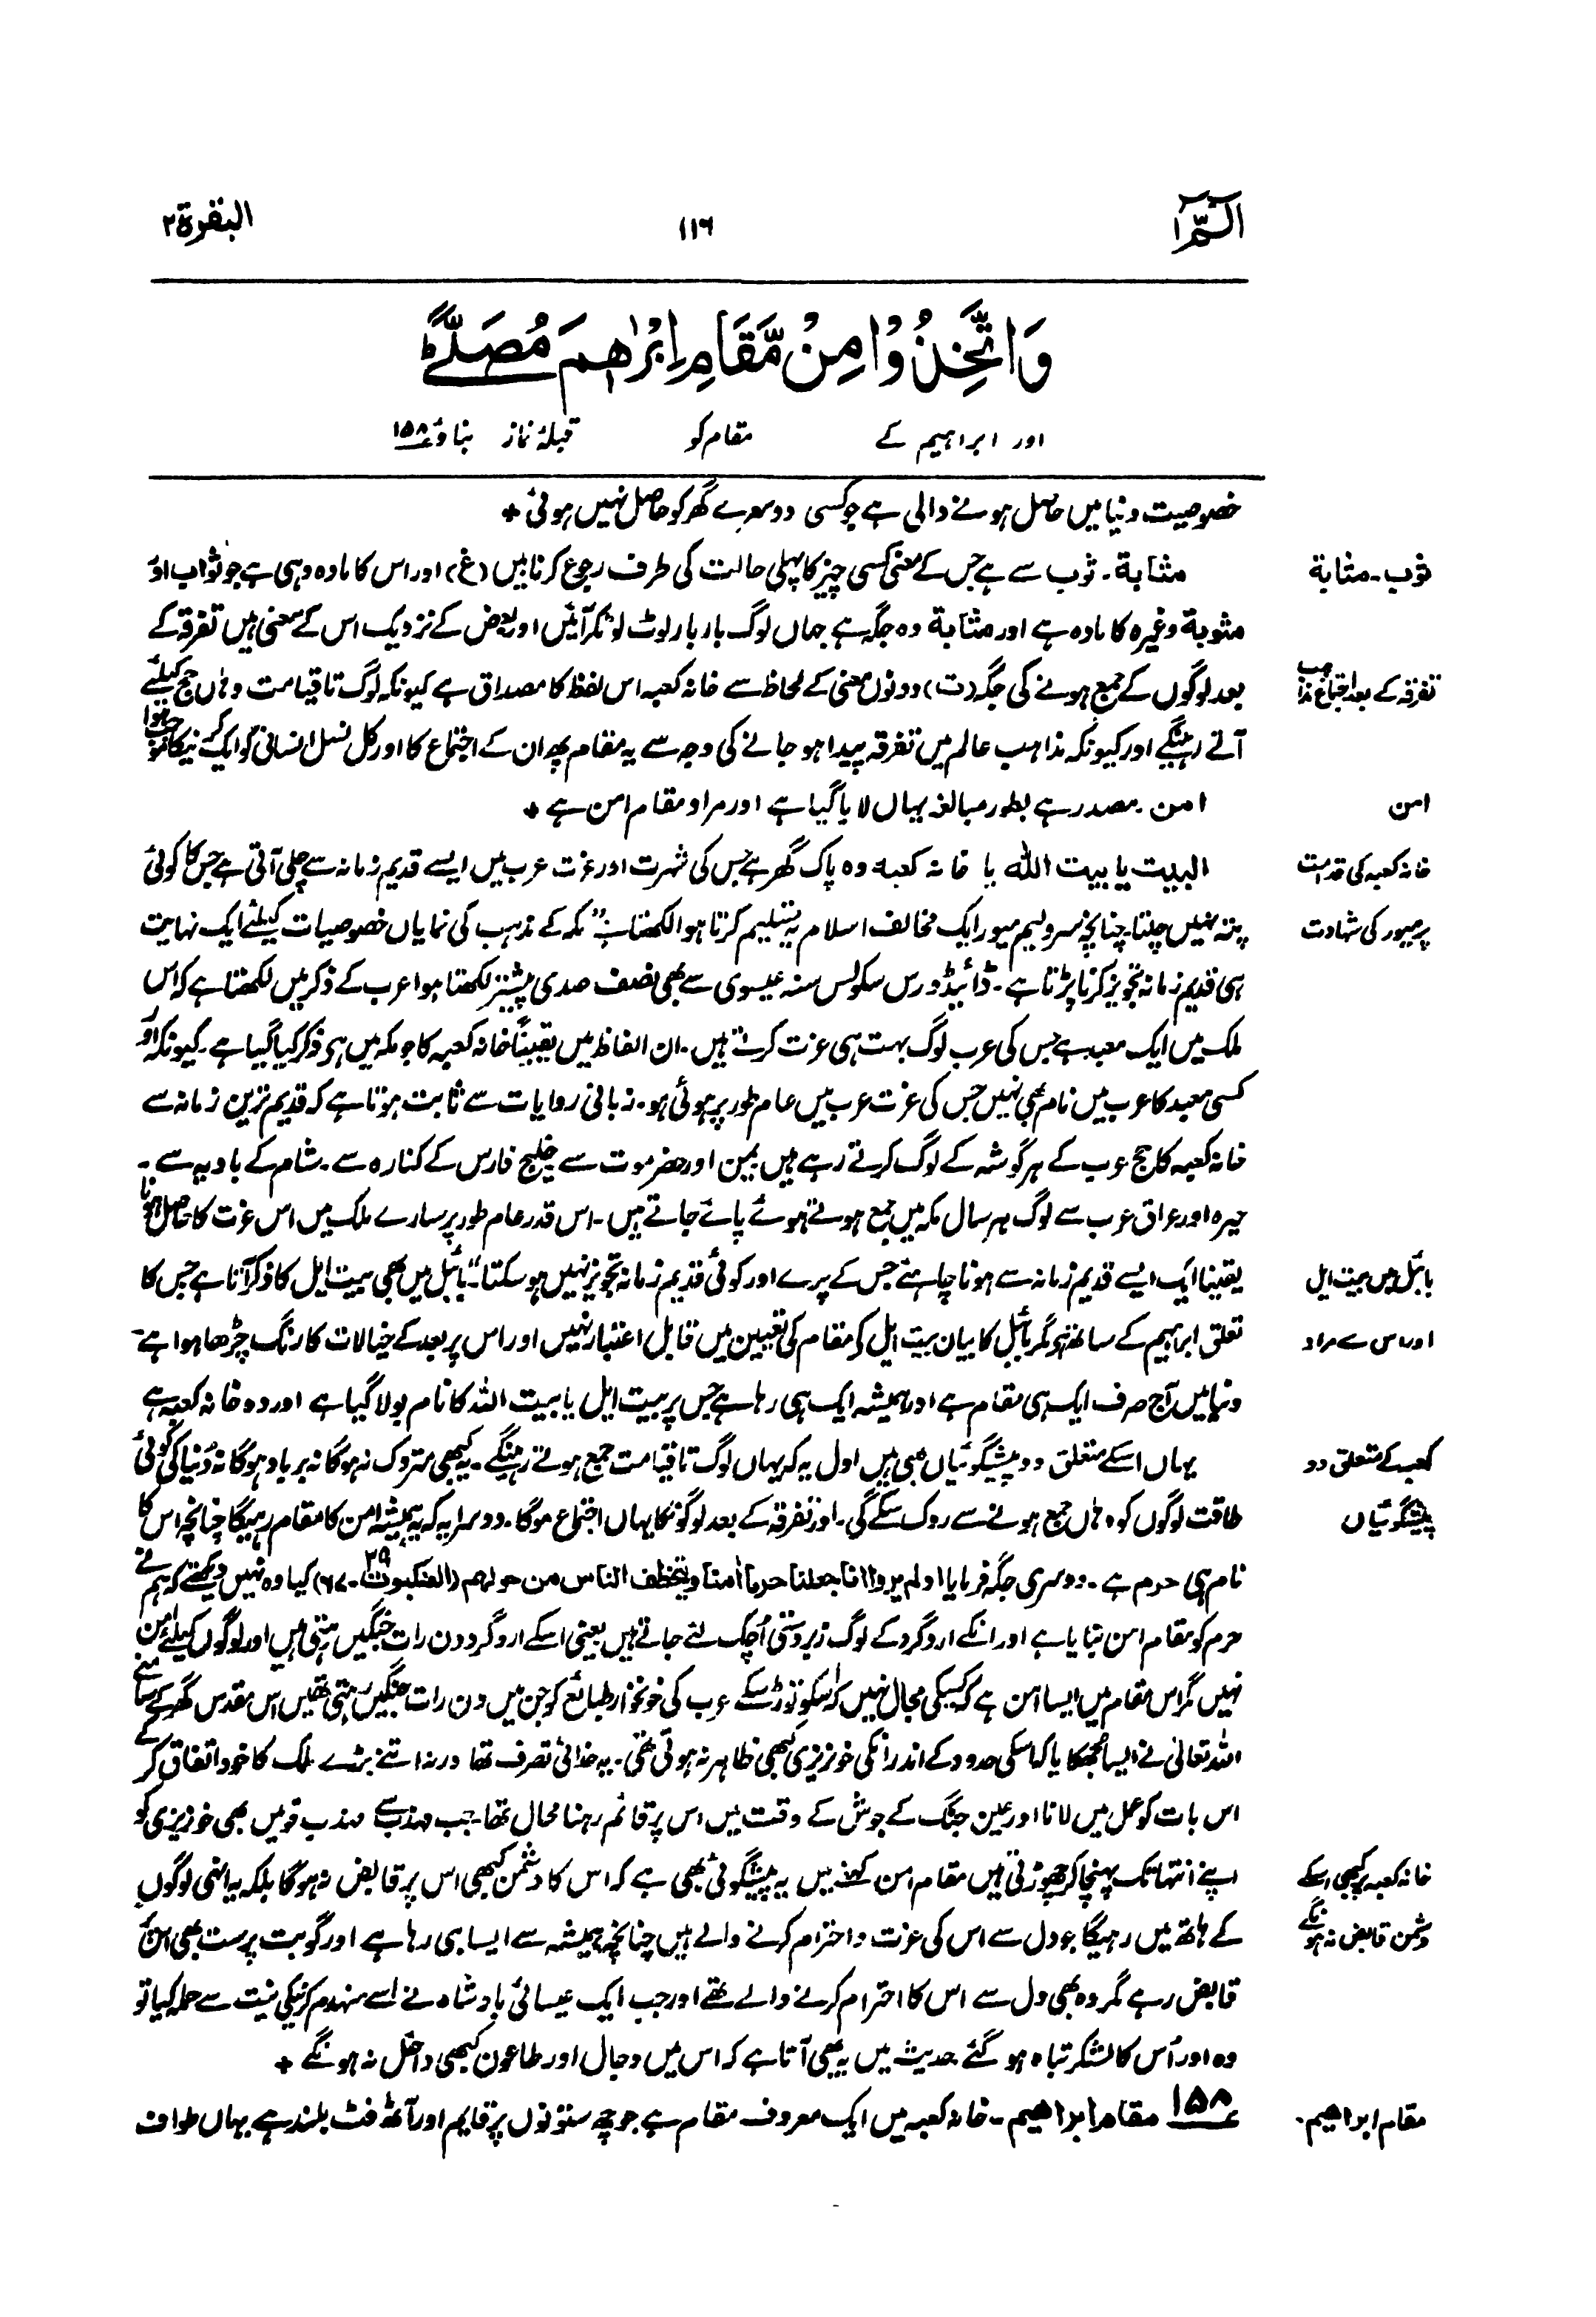 الٓمّٓ ا
۱۱۶
البقرة ۲
وَاتَّخِذُوْا مِنْ مَّقَامِ اِبْرٰهٖمَ مُصَلًّىؕ
اور ابراہیم کے مقام کو قبلۂ نماز بناؤ ۱۵۸
خصوصیت دنیا میں حاصل ہونے والی ہے جو کسی دوسرے گھر کو حاصل نہیں ہوئی +
ثوب۔ مثابة
مثابة۔ ثوب سے ہے جس کے معنی کسی چیز کا پہلی حالت کی طرف رجوع کرنا ہیں (غ) اور اس کا مادہ وہی ہے جو ثواب اور
مثوبة وغیرہ کا مادہ ہے اور مثابة وہ جگہ ہے جہاں لوگ بار بار لوٹ لوٹکر آئیں اور بعض کے نزدیک اس کے معنی ہیں تفرقہ کے
تفرقہ کے بعد اجتماع مذاہب
بعد لوگوں کے جمع ہونے کی جگہ (ت) دونوں معنی کے لحاظ سے خانہ کعبہ اس لفظ کا مصداق ہے کیونکہ لوگ تا قیامت وہاں حج کیلئے
آتے رہینگے اور کیونکہ مذاہب عالم میں تفرقہ پیدا ہو جانے کی وجہ سے یہ مقام پھر ان کے اجتماع کا اور کل نسل انسانی کو ایک کرنیکا
امن
امن۔ مصدر ہے بطور مبالغہ یہاں لایا گیا ہے اور مراد مقام امن ہے +
خانہ کعبہ کی قدامت
البیت یا بیت اللہ یا خانہ کعبہ وہ پاک گھر ہے جس کی شہرت اور عزت عرب میں ایسے قدیم زمانہ سے چلی آتی ہے جس کا کوئی
پر میور کی شہادت
پتہ نہیں چلتا۔ چنانچہ سرولیم میور ایک مخالف اسلام یہ تسلیم کرتا ہوا لکھتا ہے "مکہ کے مذہب کی نمایاں خصوصیات کیلئے ایک نہایت
ہی قدیم زمانہ تجویز کرنا پڑتا ہے۔ ڈائیڈورس سکولس سنہ عیسوی سے بھی نصف صدی پیشتر لکھتا ہوا عرب کے ذکر میں لکھتا ہے کہ اس
ملک میں ایک معبد ہے جس کی عرب لوگ بہت ہی عزت کرتے ہیں۔ ان الفاظ میں یقیناً خانہ کعبہ کا جو مکہ میں ہے ذکر کیا گیا ہے۔ کیونکہ اور
کسی معبد کا عرب میں نام بھی نہیں جس کی عزت عرب میں عام طور پر ہوئی ہو۔ زبانی روایات سے ثابت ہوتا ہے کہ قدیم ترین زمانہ سے
خانہ کعبہ کا حج عرب کے ہر گوشہ کے لوگ کرتے رہے ہیں یمین اور حضرموت سے خلیج فارس کے کنارہ سے۔ شام کے بادیہ سے۔
حیرہ اور عراق عرب سے لوگ ہر سال مکہ میں جمع ہوتے ہوئے پائے جاتے ہیں۔ اس قدر عام طور پر سارے ملک میں اس عزت کا حاصل ہونا
بائبل میں بیت ایل
یقینا ایک ایسے قدیم زمانہ سے ہونا چاہئے جس کے پرے اور کوئی قدیم زمانہ تجویز نہیں ہو سکتا"۔ بائبل میں بھی بیت ایل کا ذکر آتا ہے جس کا
اور اس سے مراد
تعلق ابراہیم کے ساتھ ہو مگر بائبل کا بیان بیت ایل کو مقام کی تعیین میں قابل اعتبار نہیں اور اس پر بعد کے خیالات کا رنگ چڑھا ہوا ہے۔
دنیا میں آج صرف ایک ہی مقام ہے اور ہمیشہ ایک ہی رہا ہے جس پر بیت ایل یا بیت اللہ کا نام بولا گیا ہے اور وہ خانہ کعبہ ہے
کعبہ کے متعلق دو
یہاں اسکے متعلق دو پیشگوئیاں بھی ہیں اول یہ کہ یہاں لوگ تا قیامت جمع ہوتے رہینگے۔ یہ کبھی متروک نہ ہوگا نہ برباد ہوگا نہ دنیا کی کوئی
پیشگوئیاں
طاقت لوگوں کو وہاں جمع ہونے سے روک سکے گی۔ اور تفرقہ کے بعد لوگوں کا یہاں اجتماع ہوگا۔ دوسرا یہ کہ یہ ہمیشہ امن کا مقام رہیگا چنانچہ اس کا
نام ہی حرم ہے۔ دوسری جگہ فرمایا اولم یروا انا جعلنا حرما امنا ویتخطف الناس من حولھم (العنکبوت ۲۹۔ ۶۷) کیا وہ نہیں دیکھتے کہ ہم نے
حرم کو مقام امن بنایا ہے اور انکے اردگرد کے لوگ زبردستی اُچک لئے جاتے ہیں یعنی اسکے اردگرد دن رات جنگیں رہتی ہیں اور لوگوں کیلئے امن
نہیں مگر اس مقام میں ایسا امن ہے کہ کسیکی مجال نہیں کہ اسکو توڑ سکے عرب کی خونخوار طبائع کو جن میں دن رات جنگیں رہتی تھیں اس مقدس گھر کے سامنے
اللہ تعالیٰ نے ایسا جھکایا کہ اسکی حدود کے اندر انکی خونریزی کبھی ظاہر نہ ہوتی تھی۔ یہ خدائی تصرف تھا ورنہ اتنے بڑے ملک کا خود اتفاق کر کے
اس بات کو عمل میں لانا اور عین جنگ کے جوش کے وقت میں اس پر قائم رہنا محال تھا۔ جب مہذب سے مہذب قومیں بھی خونریزی کو
خانہ کعبہ پر کبھی اسکے
اپنے انتہا تک پہنچا کر چھوڑتی ہیں مقام امن کہنے میں یہ پیشگوئی بھی ہے کہ اس کا دشمن کبھی اس پر قابض نہ ہوگا بلکہ یہ انہی لوگوں
دشمن قابض نہ ہونگے
کے ہاتھ میں رہیگا جو دل سے اس کی عزت و احترام کرنے والے ہیں چنانچہ ہمیشہ سے ایسا ہی رہا ہے اور گو بت پرست بھی اس پر
قابض رہے مگر وہ بھی دل سے اس کا احترام کرنے والے تھے اور جب ایک عیسائی بادشاہ نے اسے منہدم کرنیکی نیت سے حملہ کیا تو
وہ اور اُس کا لشکر تباہ ہو گئے۔ حدیث میں یہ بھی آتا ہے کہ اس میں دجال اور طاعون کبھی داخل نہ ہونگے +
مقام ابراھیم۔
۱۵۸ مقام ابراھیم۔ خانہ کعبہ میں ایک معروف مقام ہے جو چھ ستونوں پر قایم اور آٹھ فٹ بلند ہے یہاں طواف